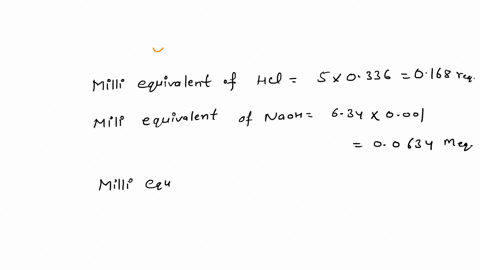 Milli equivalent of Hcl = 5 × 0.336 = 0.168 meq.
Mili equivalent of NaOH = 6.34 × 0.001
= 0.0634 Meq
Milli equ